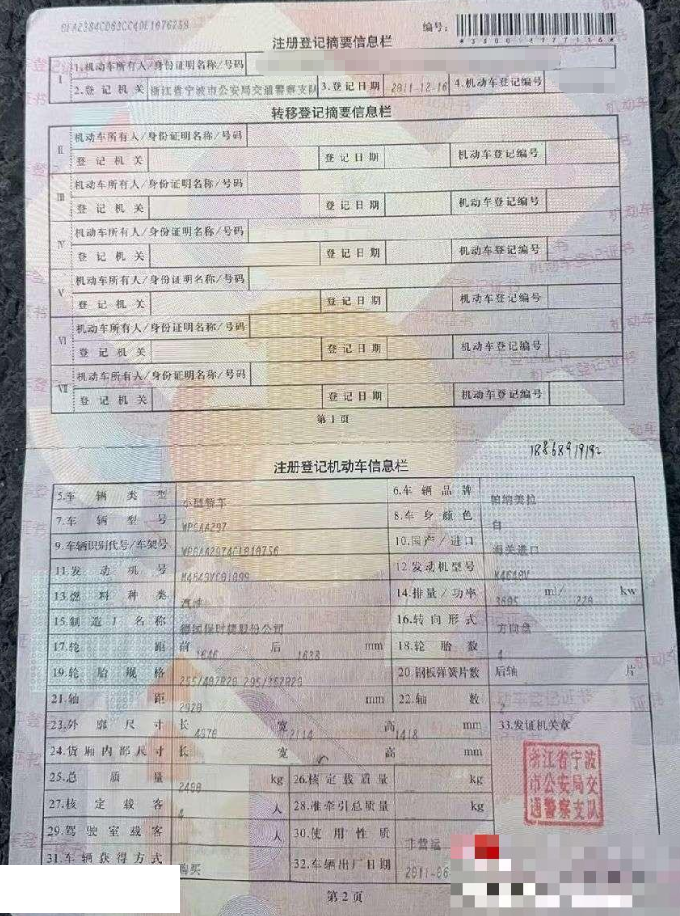 编号:
注册登记摘要信息栏
Ⅰ 1.机动车所有人/身份证明名称/号码
2.登记机关 浙江省宁波市公安局交通警察支队 3.登记日期 2011-12-16 4.机动车登记编号
转移登记摘要信息栏
Ⅱ 机动车所有人/身份证明名称/号码
登记机关 登记日期 机动车登记编号
Ⅲ 机动车所有人/身份证明名称/号码
登记机关 登记日期 机动车登记编号
Ⅳ 机动车所有人/身份证明名称/号码
登记机关 登记日期 机动车登记编号
Ⅴ 机动车所有人/身份证明名称/号码
登记机关 登记日期 机动车登记编号
Ⅵ 机动车所有人/身份证明名称/号码
登记机关 登记日期 机动车登记编号
Ⅶ 机动车所有人/身份证明名称/号码
登记机关 登记日期 机动车登记编号
第1页
注册登记机动车信息栏
5.车辆类型 小型轿车 6.车辆品牌 帕纳美拉
7.车辆型号 WP0AA297 8.车身颜色 白
9.车辆识别代号/车架号 10.国产/进口 海关进口
11.发动机号 12.发动机型号
13.燃料种类 汽油 14.排量/功率 ml/ kw
15.制造厂名称 德国保时捷股份公司 16.转向形式 方向盘
17.轮距 前 1646 后 mm 18.轮胎数 4
19.轮胎规格 20.钢板弹簧片数 后轴 片
21.轴距 2920 mm 22.轴数 2
23.外廓尺寸 长 4970 宽 2114 高 1418 mm 33.发证机关章
24.货厢内部尺寸 长 宽 高 mm
25.总质量 kg 26.核定载质量 kg
浙江省宁波
市公安局交
通警察支队
27.核定载客 4 人 28.准牵引总质量 kg
29.驾驶室载客 人 30.使用性质 非营运
31.车辆获得方式 购买 32.车辆出厂日期
第2页